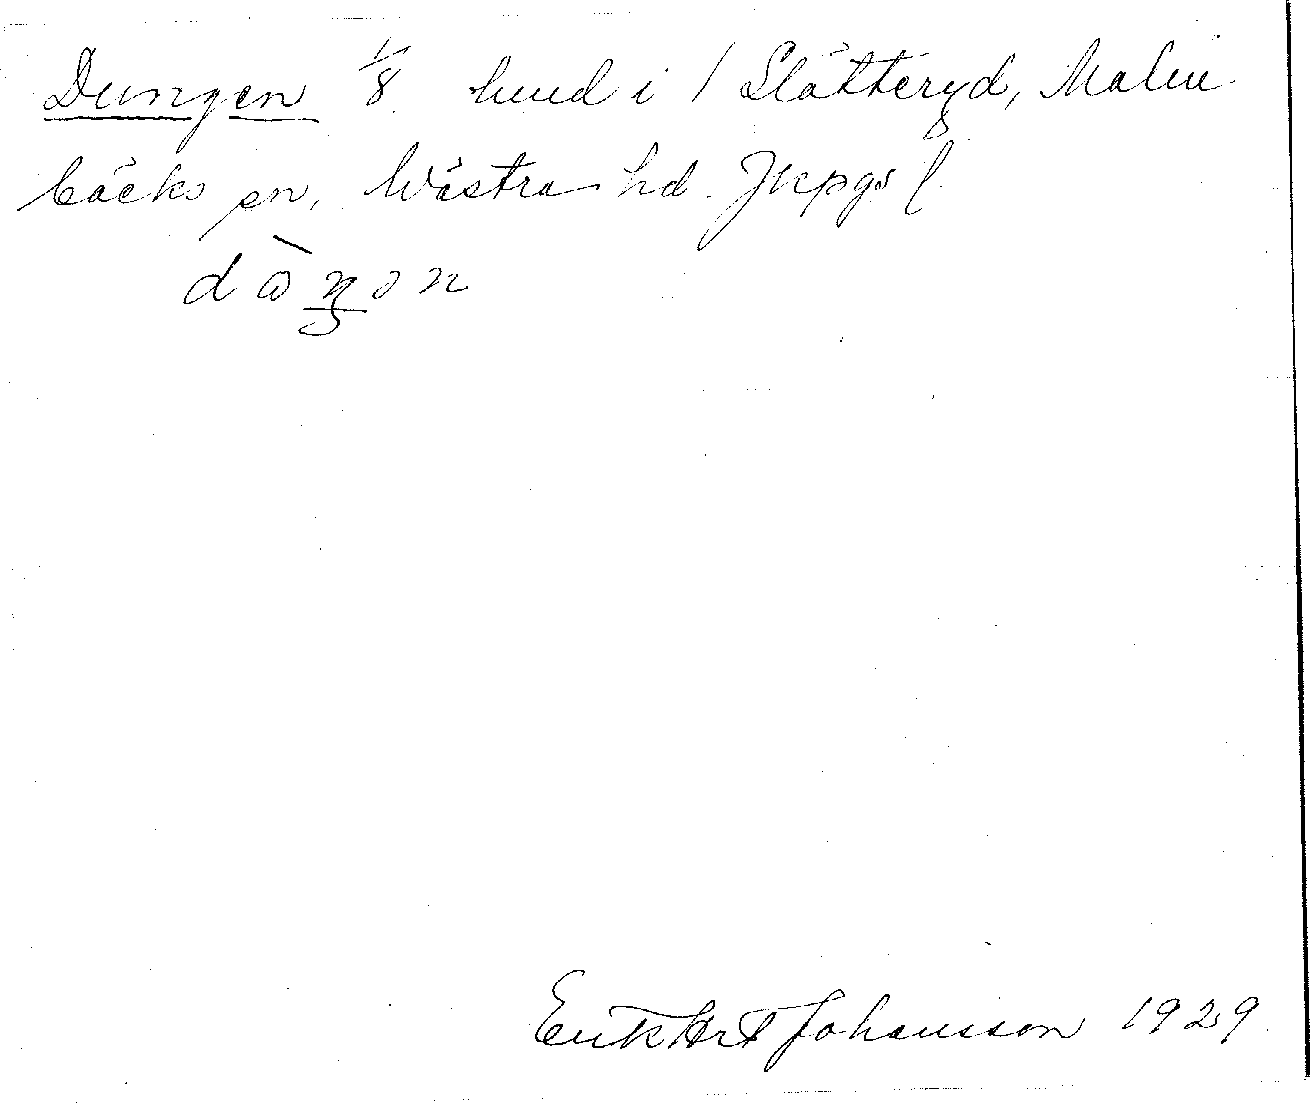 Dungen 1/8 hmd i 1 Slätteryd, Malm
bäcks sn, Västra hd. Jkpgs l.
Johansson 1929